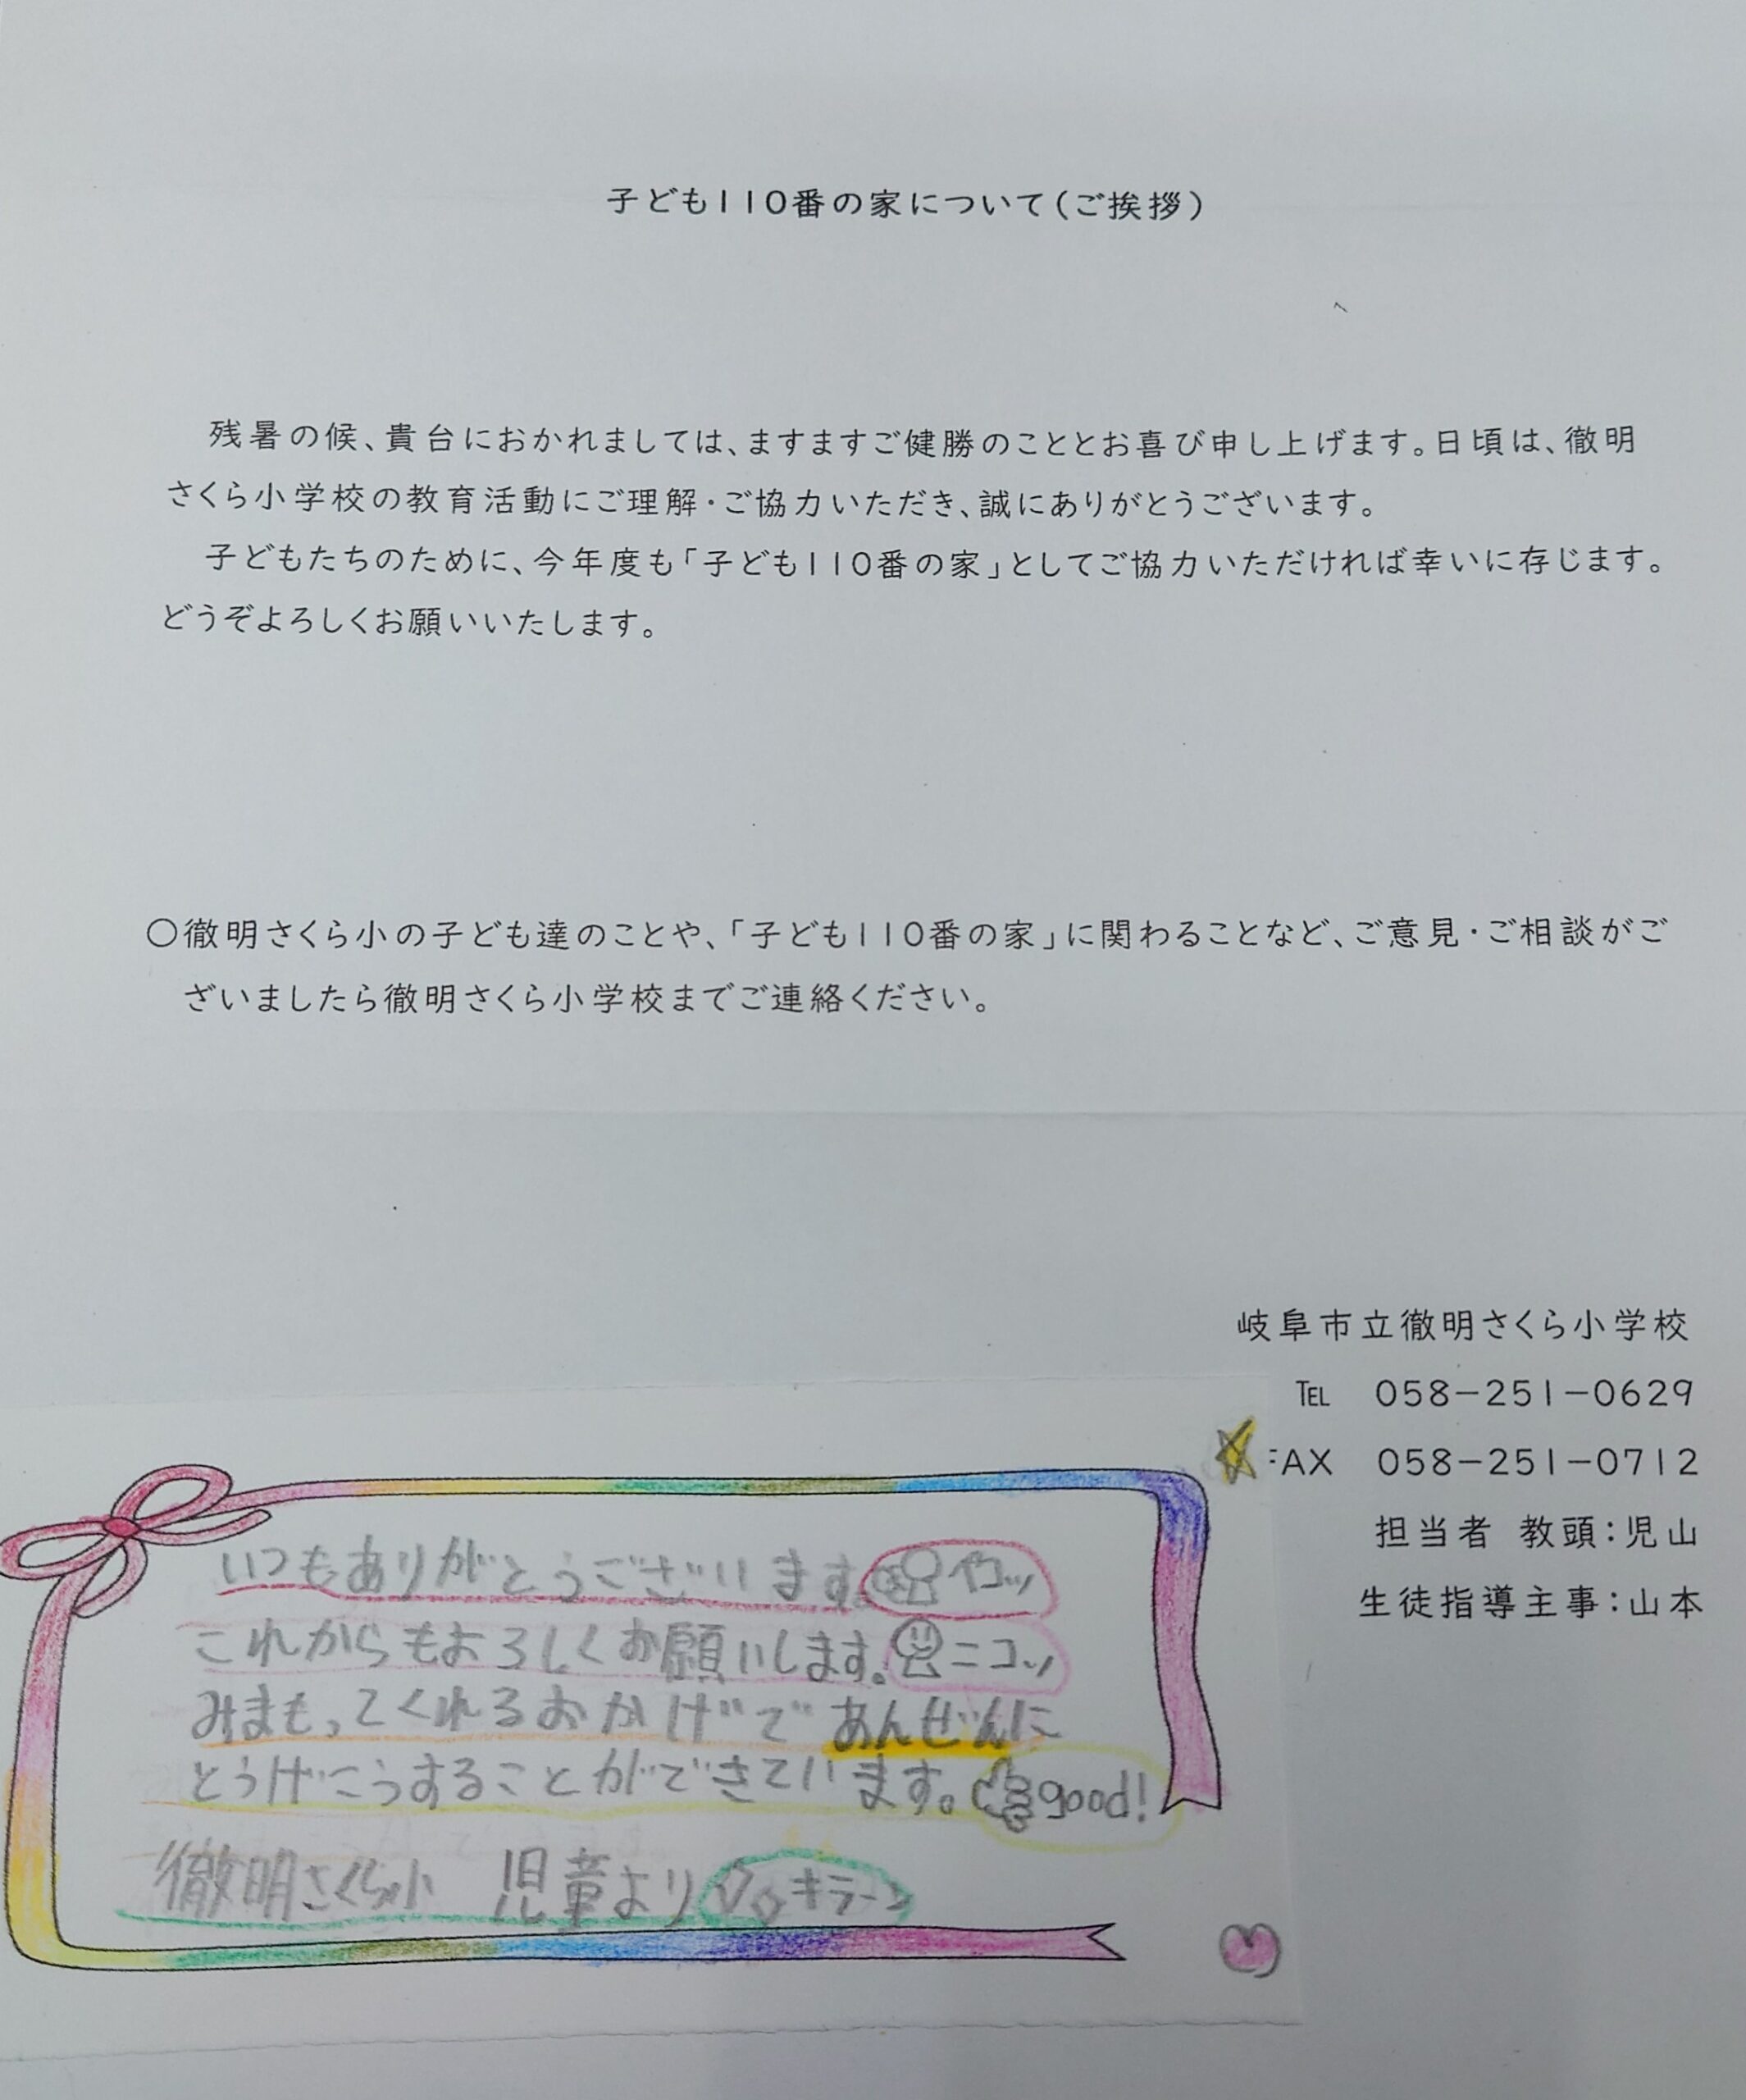 子ども110番の家について(ご挨拶)
残暑の候、貴台におかれましては、ますますご健勝のこととお喜び申し上げます。日頃は、徹明
さくら小学校の教育活動にご理解・ご協力いただき、誠にありがとうございます。
子どもたちのために、今年度も「子ども110番の家」としてご協力いただければ幸いに存じます。
どうぞよろしくお願いいたします。
○徹明さくら小の子ども達のことや、「子ども110番の家」に関わることなど、ご意見・ご相談がご
ざいましたら徹明さくら小学校までご連絡ください。
岐阜市立徹明さくら小学校
℡ 058-251-0629
FAX 058-251-0712
担当者 教頭:児山
生徒指導主事:山本
いつもありがとうございます。
これからもよろしくお願いします。ニコッ
みまもってくれるおかげであんぜんに
とうげこうすることができています。good!
徹明さくら小 児童より キラーン